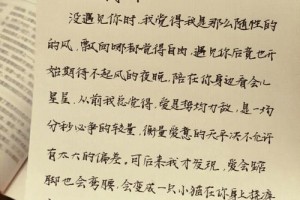 没遇见你时，我觉得我是那么随性的
的风，飘向哪都觉得自由，遇见你后竟也
开始期待不起风的夜晚，陪在你身边看会儿
星星，从前我总觉得，爱是势均力敌，是一场
分秒必争的较量，衡量爱意的天平决不允许
有太大的偏差，可后来我才发现，爱会踮
脚也会弯腰，会变成一只小猫在你身上撒